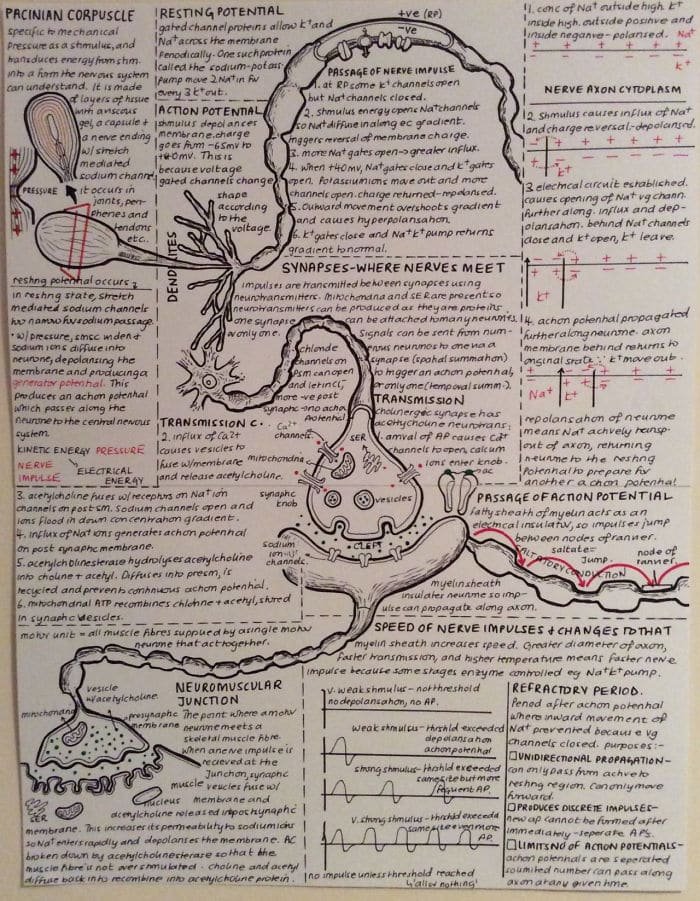 PACINIAN CORPUSCLE
specific to mechanical
pressure as a stimulus, and
transduces energy from stim.
into a form the nervous system
can understand. It is made
of layers of tissue
with a viscous
gel, a capsule +
a nerve ending
w/ stretch
mediated
sodium channel
PRESSURE
it occurs in
joints, peri-
phenes and
tendons
etc.
resting potential occurs
in resting state, stretch
mediated sodium channels
too narrow for sodium passage.
· w/ pressure, smsc widen +
sodium ions diffuse into
neurone, depolarising the
membrane and producing a
generator potential. This
produces an action potential
which passes along the
neurone to the central nervous
system.
KINETIC ENERGY PRESSURE
NERVE IMPULSE
ELECTRICAL ENERGY
RESTING POTENTIAL
gated channel proteins allow K+ and
Na+ across the membrane
periodically. One such protein
called the sodium-potass.
pump move 2Na+ in for
every 3K+ out.
ACTION POTENTIAL
stimulus depolarises
membrane. charge
goes from -65mv to
+40mv. This is
because voltage
gated channels change
shape
according
to the
voltage.
DENDRITES
+ve (RP)
-ve
PASSAGE OF NERVE IMPULSE
1. at RP some K+ channels open
but Na+ channels closed.
2. stimulus energy opens Na+ channels
so Na+ diffuse in along ec gradient.
triggers reversal of membrane charge.
3. more Na+ gates open → greater influx.
4. when +40mv, Na+ gates close and K+ gates
open. Potassium ions move out and more
channels open. charge restored-repolarised.
5. Outward movement overshoots gradient
and causes hyperpolarisation.
6. K+ gates close and Na+K+ pump returns
gradient to normal.
1. conc of Na+ outside high. K+
inside high. outside positive and
inside negative- polarised.
Na+
K+
NERVE AXON CYTOPLASM
2. stimulus causes influx of Na+
and charge reversal-depolarised.
3. electrical circuit established.
causes opening of Na+ vg chann.
further along. influx and dep-
olarisation. behind Na+ channels
close and K+ open, K+ leave.
K+
4. action potential propagated
further along neurone. axon
membrane behind returns to
original state ∵ K+ move out.
Na+
K+
repolarisation of neurone
means Na+ actively transp-
out of axon, returning
neurone to the resting
potential to prepare for
another action potential
SYNAPSES-WHERE NERVES MEET
impulses are transmitted between synapses using
neurotransmitters. mitochondria and SER are present so
neurotransmitters can be produced as they are proteins.
one synapse can be attached to many neurones,
or only one. Signals can be sent from num-
erous neurones to one via a
synapse (spatial summation)
to trigger an action potential,
or only one (temporal summ.).
chloride
channels on
PSM can open
and let in Cl-,
more -ve post
synaptic → no action
potential
TRANSMISSION
cholinergic synapse has
acetylcholine neurotrans:
1. arrival of AP causes Ca2+
channels to open, calcium
ions enter knob.
TRANSMISSION C..
2. influx of Ca2+
causes vesicles to
fuse w/ membrane
and release acetylcholine.
Ca2+
channels
SER
mitochondria
vesicles
synaptic
knob
CLEFT
sodium
ion
channels
3. acetylcholine fuses w/ receptors on Na+ ion
channels on post sm. Sodium channels open and
ions flood in down concentration gradient.
4. influx of Na+ ions generates action potential
on post synaptic membrane.
5. acetylcholinesterase hydrolyses acetylcholine
into choline + acetyl. Diffuses into presm, is
recycled and prevents continuous action potential.
6. mitochondrial ATP recombines choline + acetyl, stored
in synaptic vesicles.
motor unit = all muscle fibres supplied by a single motor
neurone that act together.
PASSAGE OF ACTION POTENTIAL
fatty sheath of myelin acts as an
electrical insulator, so impulses jump
between nodes of ranvier.
SALTATORY CONDUCTION
saltate=
jump.
node of
ranvier.
myelin sheath
insulates neurone so imp-
ulse can propagate along axon.
SPEED OF NERVE IMPULSES + CHANGES TO THAT
myelin sheath increases speed. Greater diameter of axon,
faster transmission, and higher temperature means faster nerve
impulse because some stages enzyme controlled eg Na+K+ pump.
NEUROMUSCULAR
JUNCTION
The point where a motor
neurone meets a
skeletal muscle fibre.
When a nerve impulse is
recieved at the
junction, synaptic
vesicles fuse w/
membrane and
acetylcholine released into postsynaptic
membrane. This increases its permeability to sodium ions
so Na+ enters rapidly and depolarises the membrane. AC
broken down by acetylcholinesterase so that the
muscle fibre is not over stimulated - choline and acetyl
diffuse back into recombine into acetylcholine protein.
vesicle
w/ acetylcholine.
mitochondria
presynaptic
membrane
muscle
SER
nucleus
v. weak stimulus - no threshold
no depolarisation, no AP.
weak stimulus - thrshld exceeded
depolarisation
action potential
strong stimulus - thrshld exceeded
same size but more
frequent AP.
v. strong stimulus - thrshld exceeded
same size even more
AP.
no impulse unless threshold reached
↳ 'all or nothing'
REFRACTORY PERIOD.
Period after action potential
where inward movement of
Na+ prevented because vg
channels closed. purposes:-
UNIDIRECTIONAL PROPAGATION-
can only pass from active to
resting region. Can only move
forward.
PRODUCES DISCRETE IMPULSES-
new ap cannot be formed after
immediately - seperate APs.
LIMITS NO OF ACTION POTENTIALS-
action potentials are seperated
so limited number can pass along
axon at any given time.